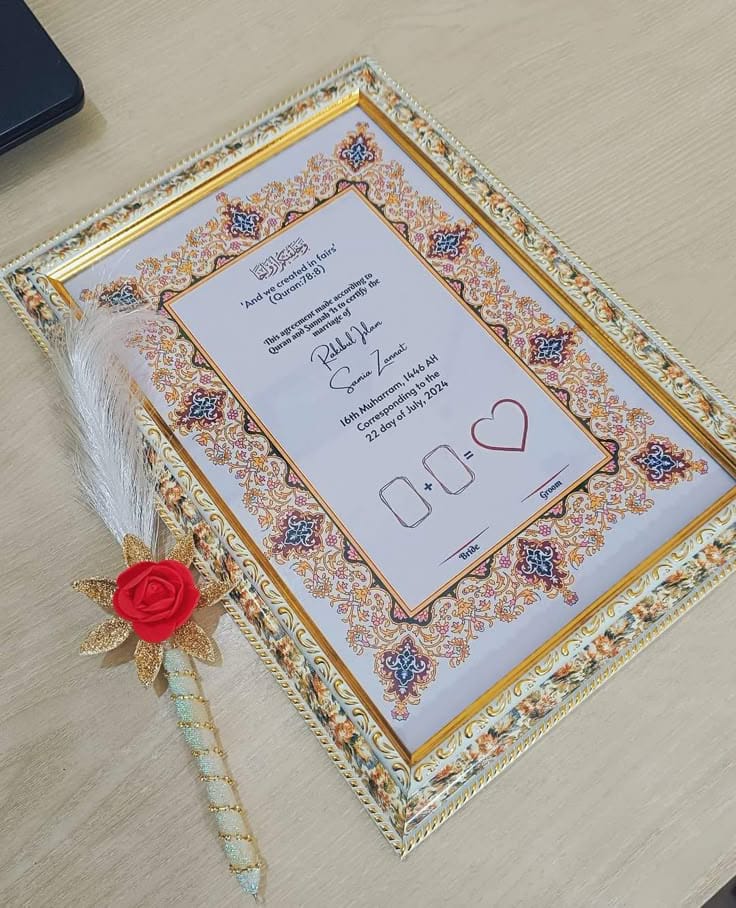 وخلقنكم ازواجا
'And we created in fairs'
(Quran:78:8)
This agreement made according to
Quran and Sunnah 'Is to certify the
marriage of
Rakibul Islam
Samia Zannat
16th Muharram, 1446 AH
Corresponding to the
22 day of July, 2024
+ =
Bride
Groom